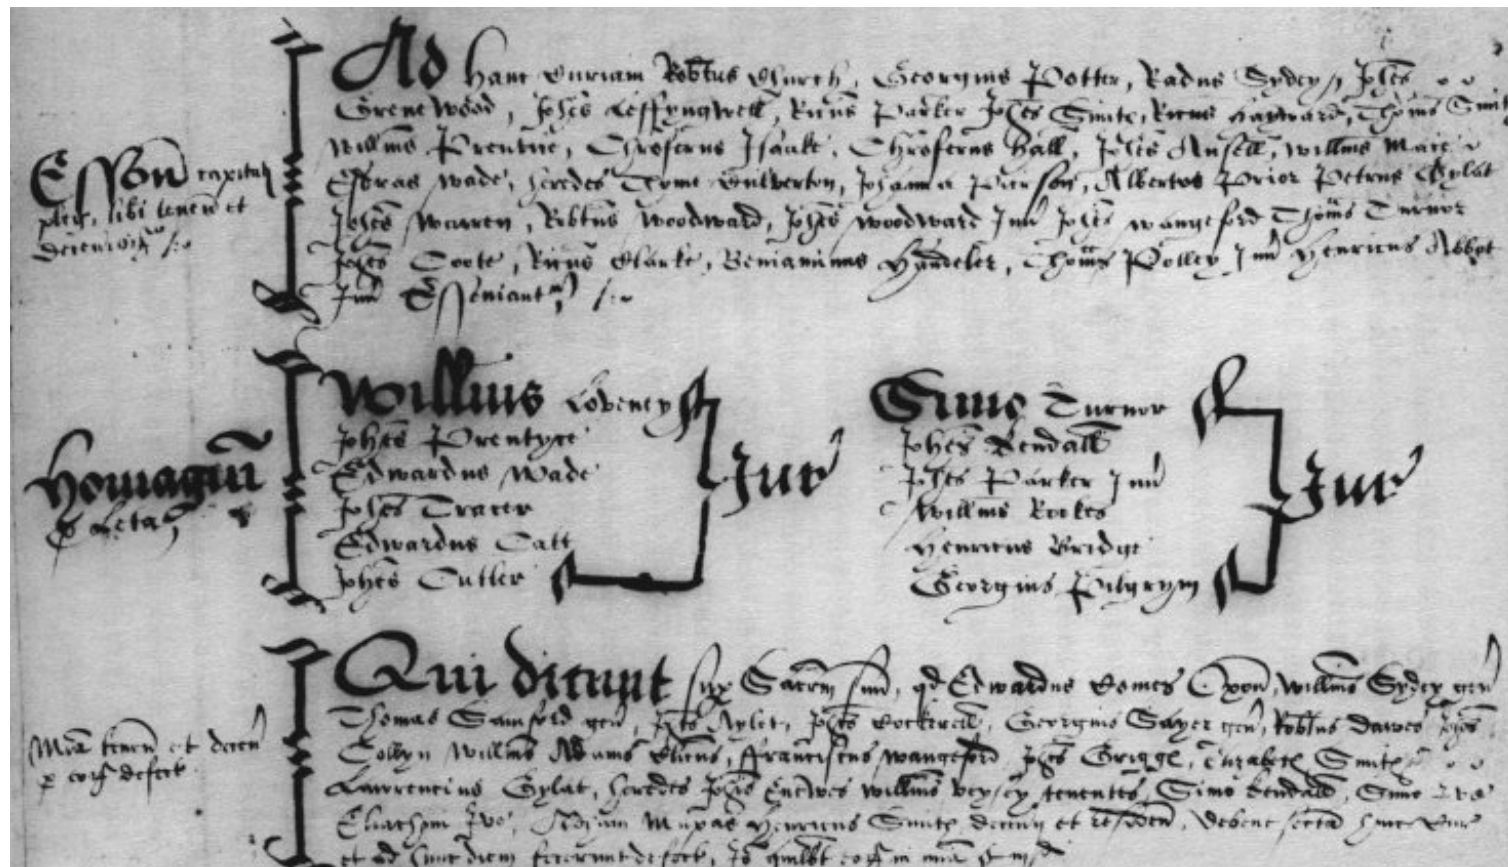 Ad hanc Curiam Robtus Church, Georgius Potter, Radus Sydey, Johes
Grenewood, Johes Leffyngwell, Ricus Parker Johes Smite, Ricus Hayward, Thoms Smith
Willms Prentice, Chroferus Isaake, Chroferus Hall, Johes Ansell, Willms
Esdras Wade, heredes Thome Culverton, Johanna Pierson, Albertus Prior Petrus Gylat
Johes Warren, Robtus Woodward, Johes Woodward Jun Johes Wangeford Thoms Turnor
Johes Coote, Ricus Clarke, Beniaminus Thoms Polley Jun Henricus Abbot
Jun Essoniant
Esson capital
pleg, libi tenen et
Willms Loveney
Johes Prentyce
Edwardus Wade
Johes Tracer
Edwardus Catt
Johes Cutler
Jur
Simo Turnor
Johes Kendall
Johes Parker Jun
Willms Rookes
Henricus Bridge
Georgius Pilgrym
Jur
Homagiu
Leta
Qui dicunt sup Sacrm suu, qd Edwardus Comes Oxon, Willms Sydey gen
Thomas Samford gen, Johes Aylet, Johes Cockerell, Georgius Sayer gen, Robtus Dawes Johes
Colbyn Willms Adams Clicus, Franciscus Wangeford Johes Grigge, Elizabeth Smith
Lawrencius Gylat, heredes Johis Willms Veysey tenentes, Simo Kendall, Simo
Ive, Adam Henricus Smith et residen, debent secta huic Cur
et ad hunc diem fecerunt defect, Jo quilibt eor in mia
Mia tenen et decen
p eor defect